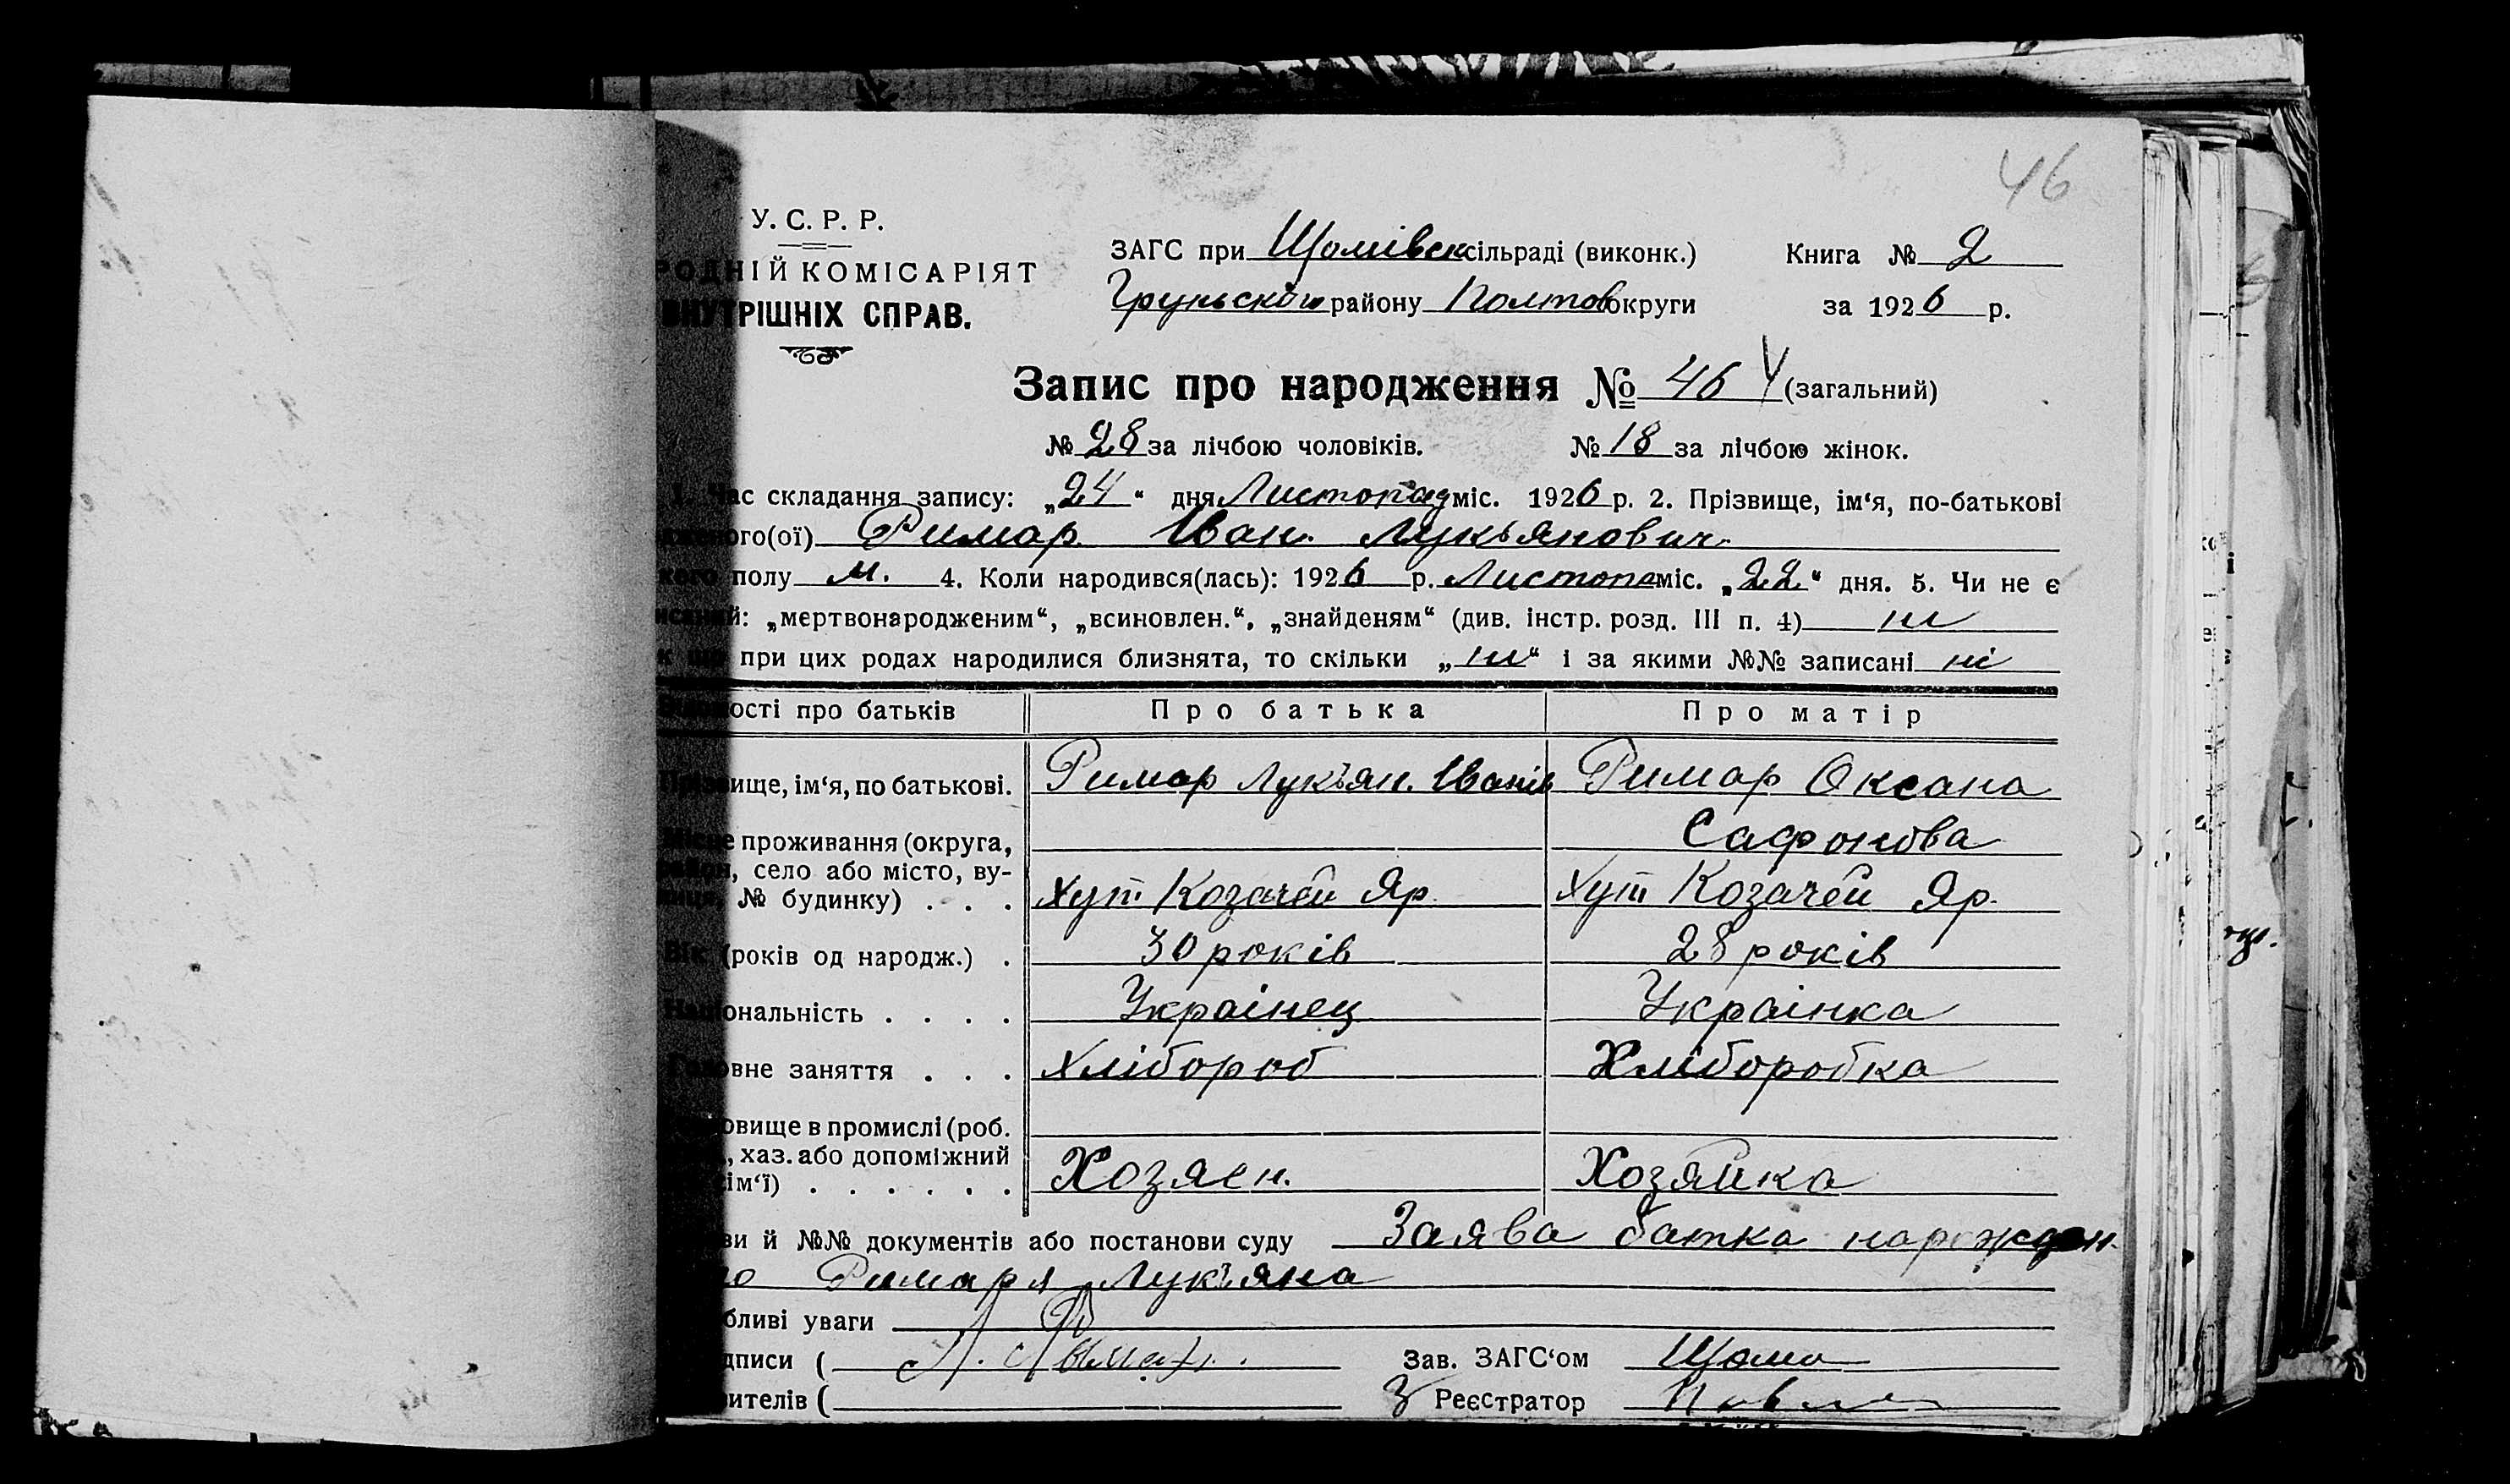 46
У. С. Р. Р.
РОДНІЙ КОМІСАРІЯТ
ВНУТРІШНІХ СПРАВ.
ЗАГС при Щомівск сільраді (виконк.) Книга № 2
Груньского району Полтов округи за 1926 р.
Запис про народження № 46 (загальний)
№ 28 за лічбою чоловіків. № 18 за лічбою жінок.
1. Час складання запису: „24“ дня Листопад міс. 1926 р. 2. Прізвище, ім‘я, по-батькові
дженого(ої) Римар Іван Лукьянович
кого полу м. 4. Коли народився(лась): 1926 р. Листопа міс. „22“ дня. 5. Чи не є
исаний: „мертвонародженим“, „всиновлен.“, „знайденям“ (див. інстр. розд. III п. 4) ні
к що при цих родах народилися близнята, то скільки „ні“ і за якими №№ записані ні
Відомості про батьків Про батька Про матір
Прізвище, ім‘я, по батькові. Римар Лукъян. Іванів Римар Оксана
Місце проживання (округа, Сафонова
район, село або місто, ву-
лиця, № будинку) . . . Хут Козачей Яр. Хут Козачей Яр.
Вік (років од народж.) . 30 років 28 років
Національність . . . . Украінец Украінка
Головне заняття . . . Хлібороб Хліборобка
овище в промислі (роб.
, хаз. або допоміжний
ім‘ї) . . . . . . Хозяен. Хозяйка
ви й №№ документів або постанови суду Заява батка нарожден.
го Римаря Лукъяна
бливі уваги
дписи ( Зав. ЗАГС‘ом Щома
вителів ( З Реєстратор